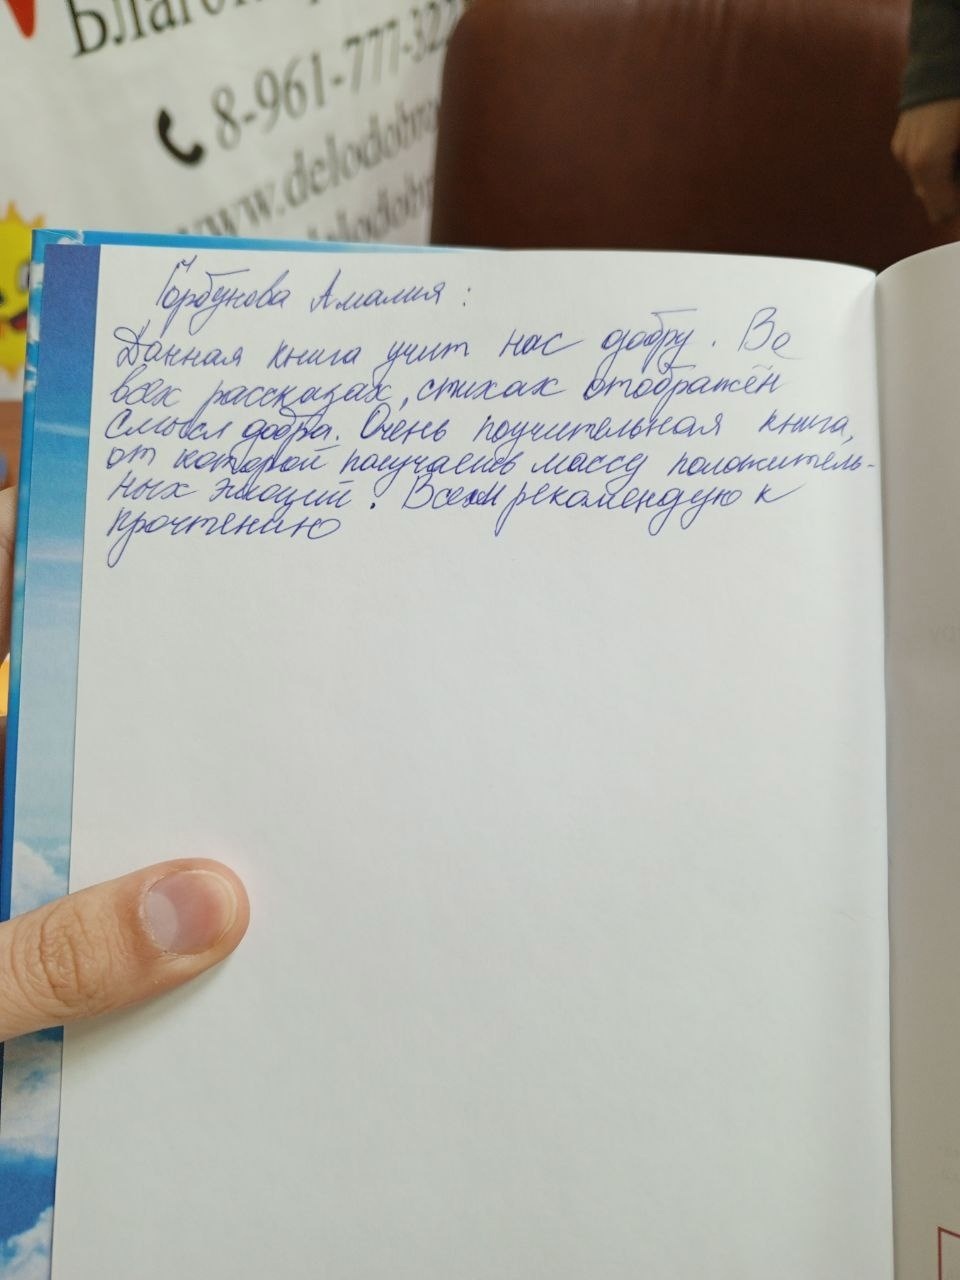 Благот
8-961-777-322
www.delodobra
delodobr
Горбунова Амалия :
Данная книга учит нас добру. Во
всех рассказах, стихах отображён
смысл добра. Очень поучительная книга,
от которой получаешь массу положитель-
ных эмоций. Всем рекомендую к
прочтению